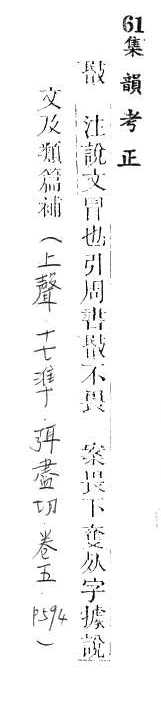 61集韻考正
敃 注說文冒也引周書敃不畏 案畏下奪𠛱字據說
文及類篇補(上聲.十七準.弭盡切.卷五.P594)